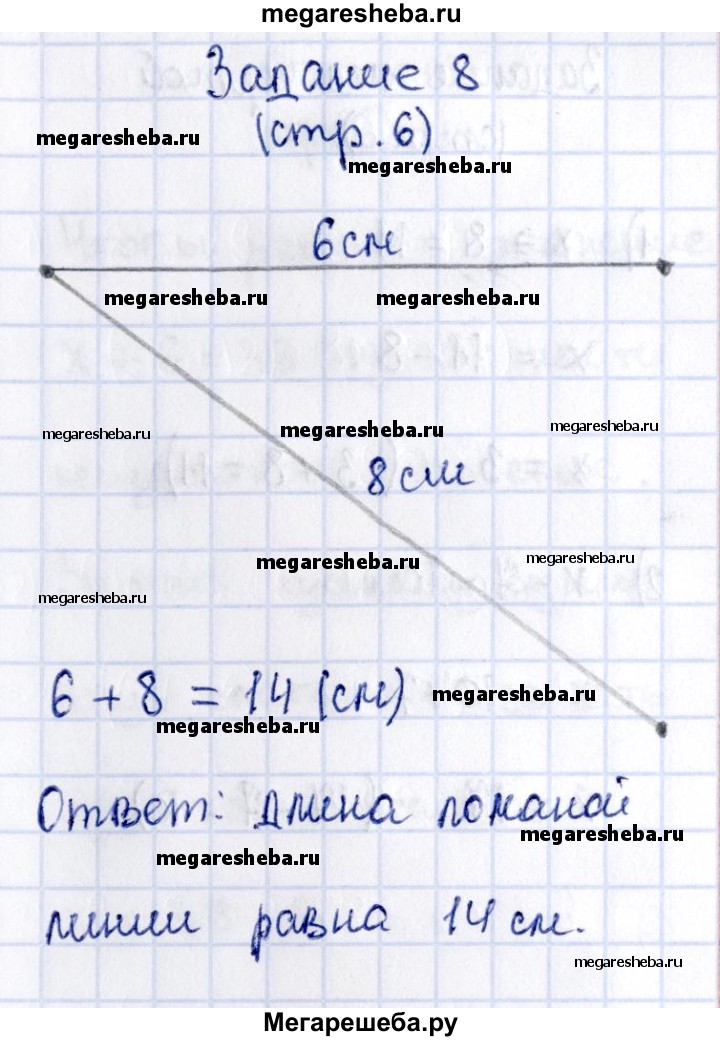 megaresheba.ru
Задание 8
megaresheba.ru
(стр. 6)
megaresheba.ru
6 см
megaresheba.ru megaresheba.ru
megaresheba.ru megaresheba.ru megaresheba.ru
8 см
megaresheba.ru megaresheba.ru
megaresheba.ru
6 + 8 = 14 (см)
megaresheba.ru
megaresheba.ru
Ответ: длина ломаной
megaresheba.ru
megaresheba.ru
линии равна 14 см.
megaresheba.ru
Мегарешеба.ру